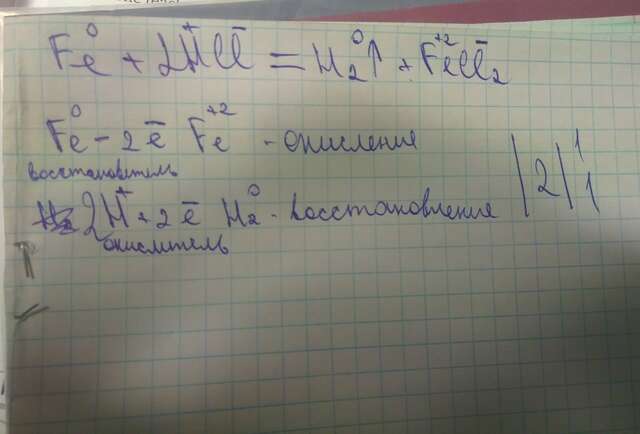 Fe⁰ + 2H⁺Cl⁻ = H₂⁰↑ + Fe⁺²Cl₂⁻
Fe⁰ - 2ē Fe⁺² - окисление
восстановитель
2H⁺ + 2ē H₂⁰ - восстановление | 2 | 1 1
окислитель